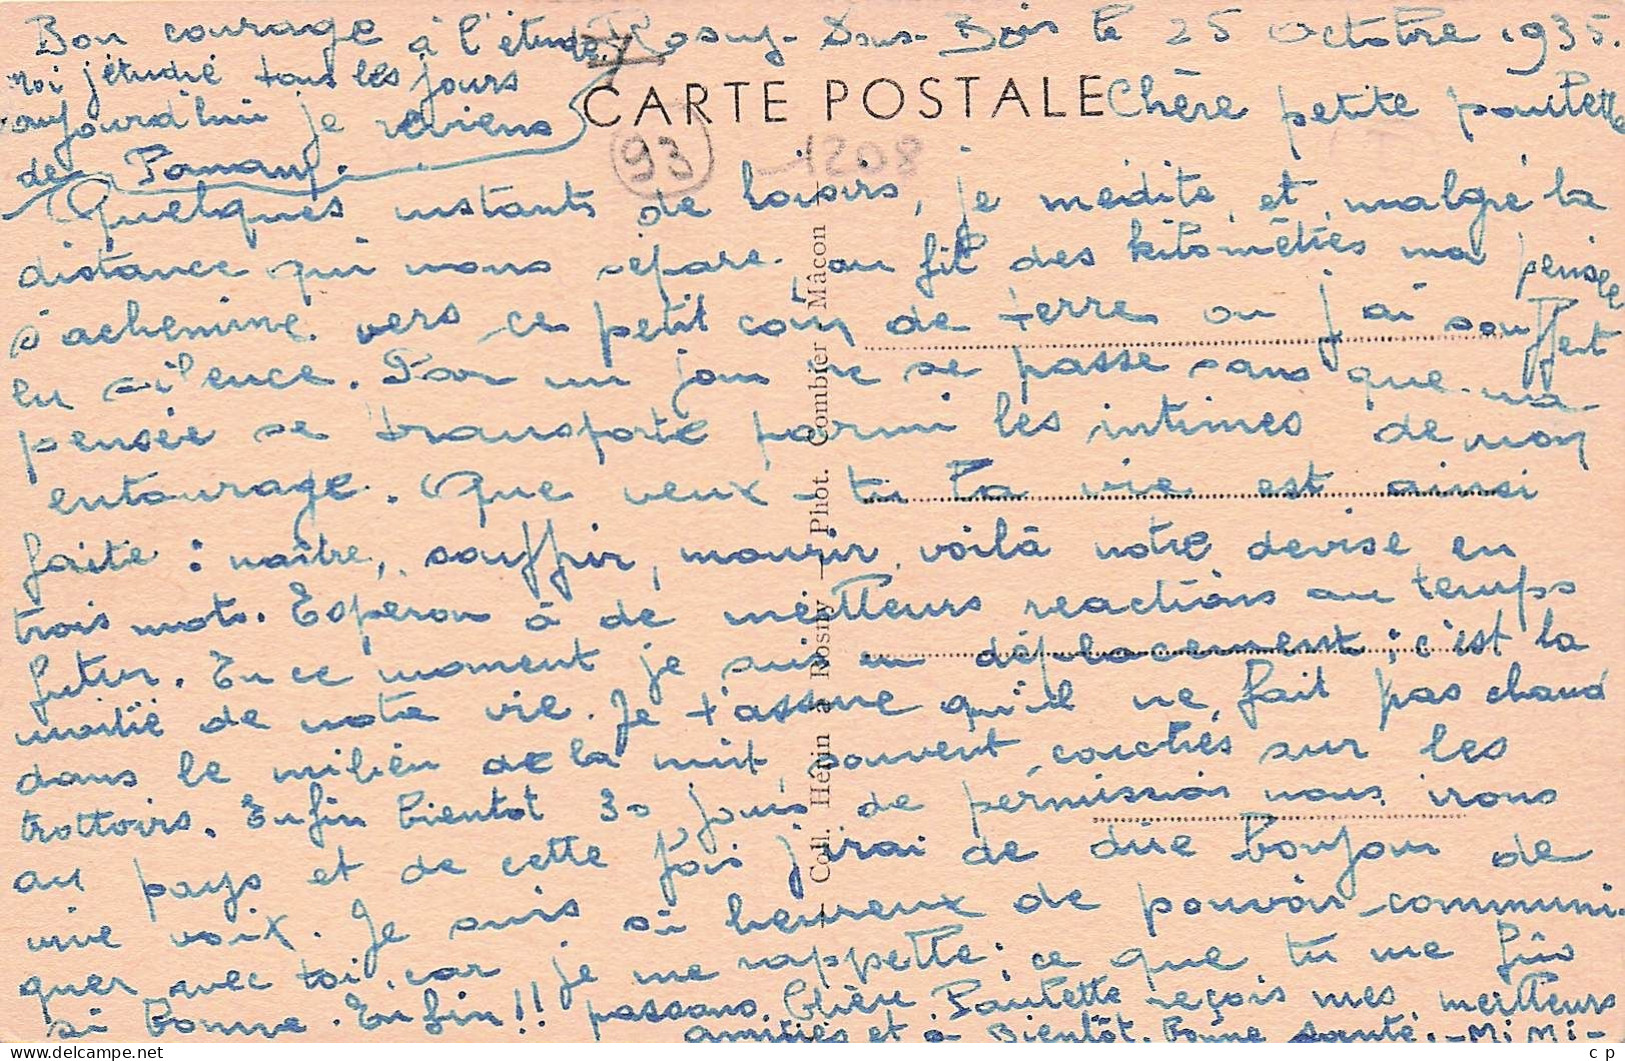 Rosny-Sous-Bois le 25 Octobre 1935.
Bon courage à l'étude,
moi j'étudie tous les jours
aujourd'hui je reviens
de Panam.
CARTE POSTALE
93
1208
Chère petite Paulette
Quelques instants de loisirs, je medite, et, malgré la
distance qui nous sépare, au fil des kilomètres ma pensée
s'achemine vers ce petit coin de terre ou j'ai souffert
en silence. Pas un jour ne se passe sans que ma
pensée se transporte parmi les intimes de mon
entourage. Que veux-tu la vie est ainsi
faite : naître, souffrir, mourir, voilà notre devise en
trois mots. Esperons à de meilleurs reactions au temps
futur. En ce moment je suis en déplacement ; c'est la
moitié de notre vie. Je t'assure qu'il ne fait pas chaud
dans le milieu de la nuit, souvent couchés sur les
trottoirs. Enfin bientot 30 jours de permission nous irons
au pays et de cette fois j'irai de dire bonjour de
vive voix. Je suis si heureux de pouvoir communi-
quer avec toi, car je me rappelle ; ce que tu me fus
si bonne. Enfin !! passons. Chère Paulette reçois mes meilleurs
amitiés et à Bientôt. Bonne santé. - MiMi -
Coll. Hénin à Rosny — Phot. Combier Mâcon
cp